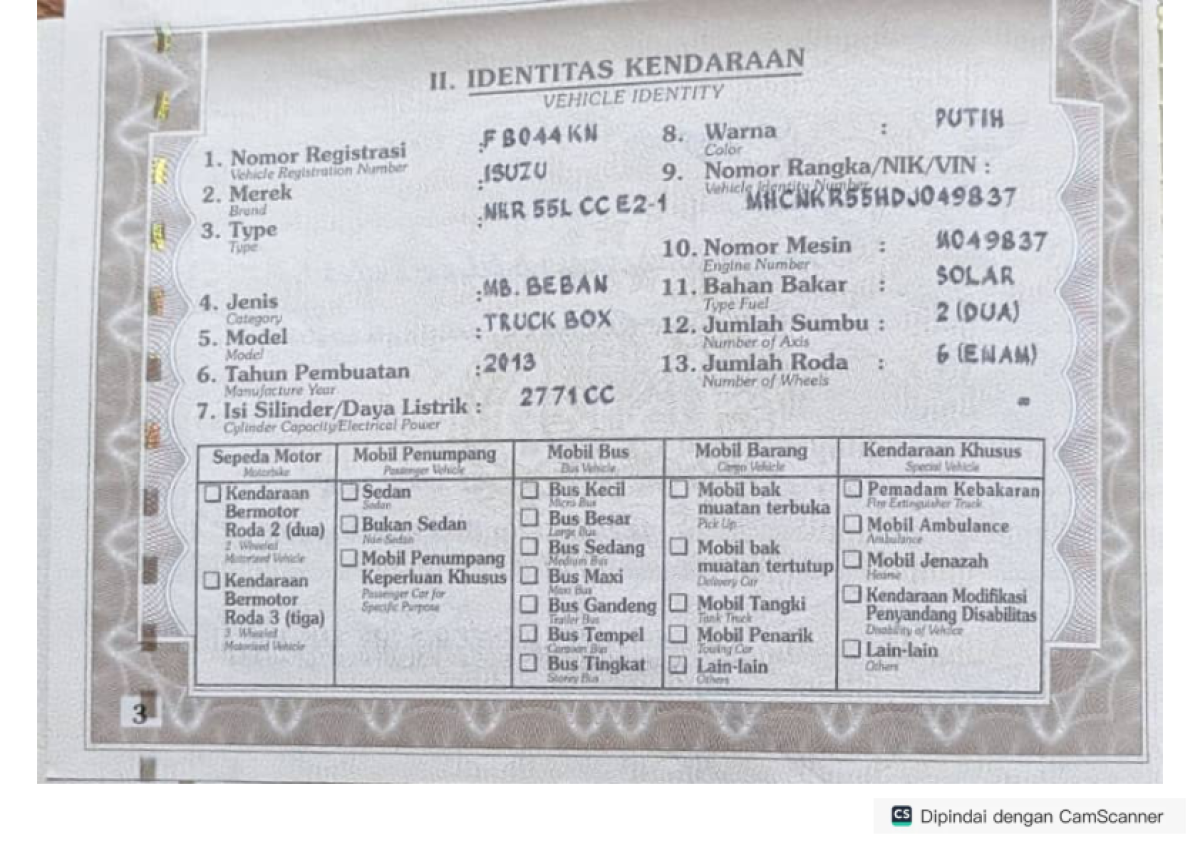 II. IDENTITAS KENDARAAN
VEHICLE IDENTITY
1. Nomor Registrasi : F 8044 KN
Vehicle Registration Number
2. Merek : ISUZU
Brand
3. Type : NKR 55L CC E2-1
Type
4. Jenis : MB. BEBAN
Category
5. Model : TRUCK BOX
Model
6. Tahun Pembuatan : 2013
Manufacture Year
7. Isi Silinder/Daya Listrik : 2771 CC
Cylinder Capacity/Electrical Power
8. Warna : PUTIH
Color
9. Nomor Rangka/NIK/VIN :
Vehicle Identity Number
MHCNKR55HDJ049837
10. Nomor Mesin : M049837
Engine Number
11. Bahan Bakar : SOLAR
Type Fuel
12. Jumlah Sumbu : 2 (DUA)
Number of Axis
13. Jumlah Roda : 6 (ENAM)
Number of Wheels
-
Sepeda Motor
Motorbike
Kendaraan
Bermotor
Roda 2 (dua)
2 - Wheeled
Motorized Vehicle
Kendaraan
Bermotor
Roda 3 (tiga)
3 - Wheeled
Motorized Vehicle
Mobil Penumpang
Passenger Vehicle
Sedan
Sedan
Bukan Sedan
Non Sedan
Mobil Penumpang
Keperluan Khusus
Passenger Car for
Specific Purpose
Mobil Bus
Bus Vehicle
Bus Kecil
Micro Bus
Bus Besar
Large Bus
Bus Sedang
Medium Bus
Bus Maxi
Maxi Bus
Bus Gandeng
Trailer Bus
Bus Tempel
Caravan Bus
Bus Tingkat
Storey Bus
Mobil Barang
Cargo Vehicle
Mobil bak
muatan terbuka
Pick Up
Mobil bak
muatan tertutup
Delivery Car
Mobil Tangki
Tank Truck
Mobil Penarik
Towing Car
Lain-lain
Others
Kendaraan Khusus
Special Vehicle
Pemadam Kebakaran
Fire Extinguisher Truck
Mobil Ambulance
Ambulance
Mobil Jenazah
Hearse
Kendaraan Modifikasi
Penyandang Disabilitas
Disability of Vehicle
Lain-lain
Others
3
CS Dipindai dengan CamScanner